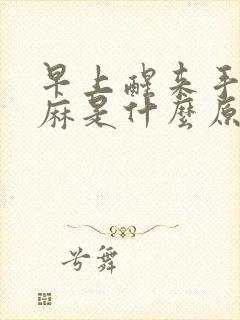 早上醒来手
麻是什麼原
兮舞